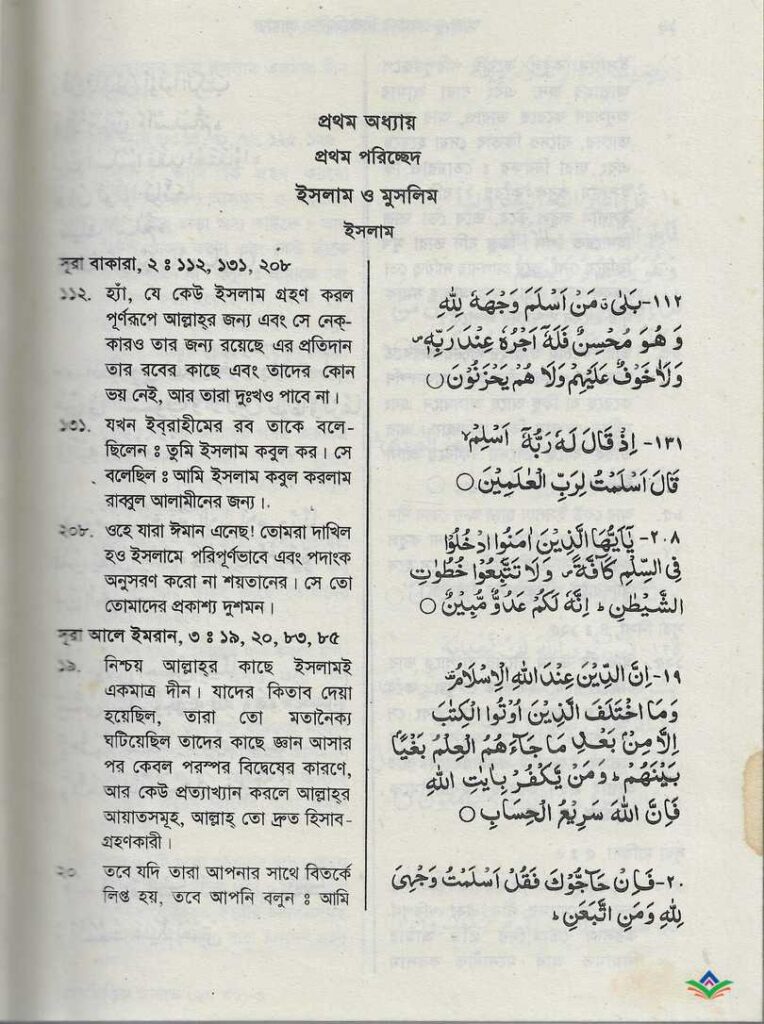 প্রথম অধ্যায়
প্রথম পরিচ্ছেদ
ইসলাম ও মুসলিম
ইসলাম
সূরা বাকারা, ২ ঃ ১১২, ১৩১, ২০৮
১১২. হ্যাঁ, যে কেউ ইসলাম গ্রহণ করল
পূর্ণরূপে আল্লাহ্‌র জন্য এবং সে নেক্-
কারও তার জন্য রয়েছে এর প্রতিদান
তার রবের কাছে এবং তাদের কোন
ভয় নেই, আর তারা দুঃখও পাবে না।
১৩১. যখন ইব্‌রাহীমের রব তাকে বলে-
ছিলেন ঃ তুমি ইসলাম কবুল কর। সে
বলেছিল ঃ আমি ইসলাম কবুল করলাম
রাব্বুল আলামীনের জন্য।
২০৮. ওহে যারা ঈমান এনেছ! তোমরা দাখিল
হও ইসলামে পরিপূর্ণভাবে এবং পদাংক
অনুসরণ করো না শয়তানের। সে তো
তোমাদের প্রকাশ্য দুশমন।
সূরা আলে ইমরান, ৩ ঃ ১৯, ২০, ৮৩, ৮৫
১৯. নিশ্চয় আল্লাহ্‌র কাছে ইসলামই
একমাত্র দীন। যাদের কিতাব দেয়া
হয়েছিল, তারা তো মতানৈক্য
ঘটিয়েছিল তাদের কাছে জ্ঞান আসার
পর কেবল পরস্পর বিদ্বেষের কারণে,
আর কেউ প্রত্যাখ্যান করলে আল্লাহ্‌র
আয়াতসমূহ, আল্লাহ্ তো দ্রুত হিসাব-
গ্রহণকারী।
২০ তবে যদি তারা আপনার সাথে বিতর্কে
লিপ্ত হয়, তবে আপনি বলুন ঃ আমি
١١٢- بَلٰى ۤ مَنْ اَسْلَمَ وَجْهَهٗ لِلّٰهِ
وَ هُوَ مُحْسِنٌ فَلَهٗۤ اَجْرُهٗ عِنْدَ رَبِّهٖ ۪
وَلَا خَوْفٌ عَلَيْهِمْ وَلَا هُمْ يَحْزَنُوْنَ ○
١٣١- اِذْ قَالَ لَهٗ رَبُّهٗۤ اَسْلِمْ ۙ
قَالَ اَسْلَمْتُ لِرَبِّ الْعٰلَمِيْنَ ○
٢٠٨- يٰۤاَيُّهَا الَّذِيْنَ اٰمَنُوا ادْخُلُوْا
فِى السِّلْمِ كَآفَّةً ۪ وَلَا تَتَّبِعُوْا خُطُوٰتِ
الشَّيْطٰنِ ؕ اِنَّهٗ لَكُمْ عَدُوٌّ مُّبِيْنٌ ○
١٩- اِنَّ الدِّيْنَ عِنْدَ اللّٰهِ الْاِسْلَامُ ۟
وَمَا اخْتَلَفَ الَّذِيْنَ اُوْتُوا الْكِتٰبَ
اِلَّا مِنْۢ بَعْدِ مَا جَآءَهُمُ الْعِلْمُ بَغْيًۢا
بَيْنَهُمْ ؕ وَمَنْ يَّكْفُرْ بِاٰيٰتِ اللّٰهِ
فَاِنَّ اللّٰهَ سَرِيْعُ الْحِسَابِ ○
٢٠- فَاِنْ حَآجُّوْكَ فَقُلْ اَسْلَمْتُ وَجْهِىَ
لِلّٰهِ وَمَنِ اتَّبَعَنِ ؕ